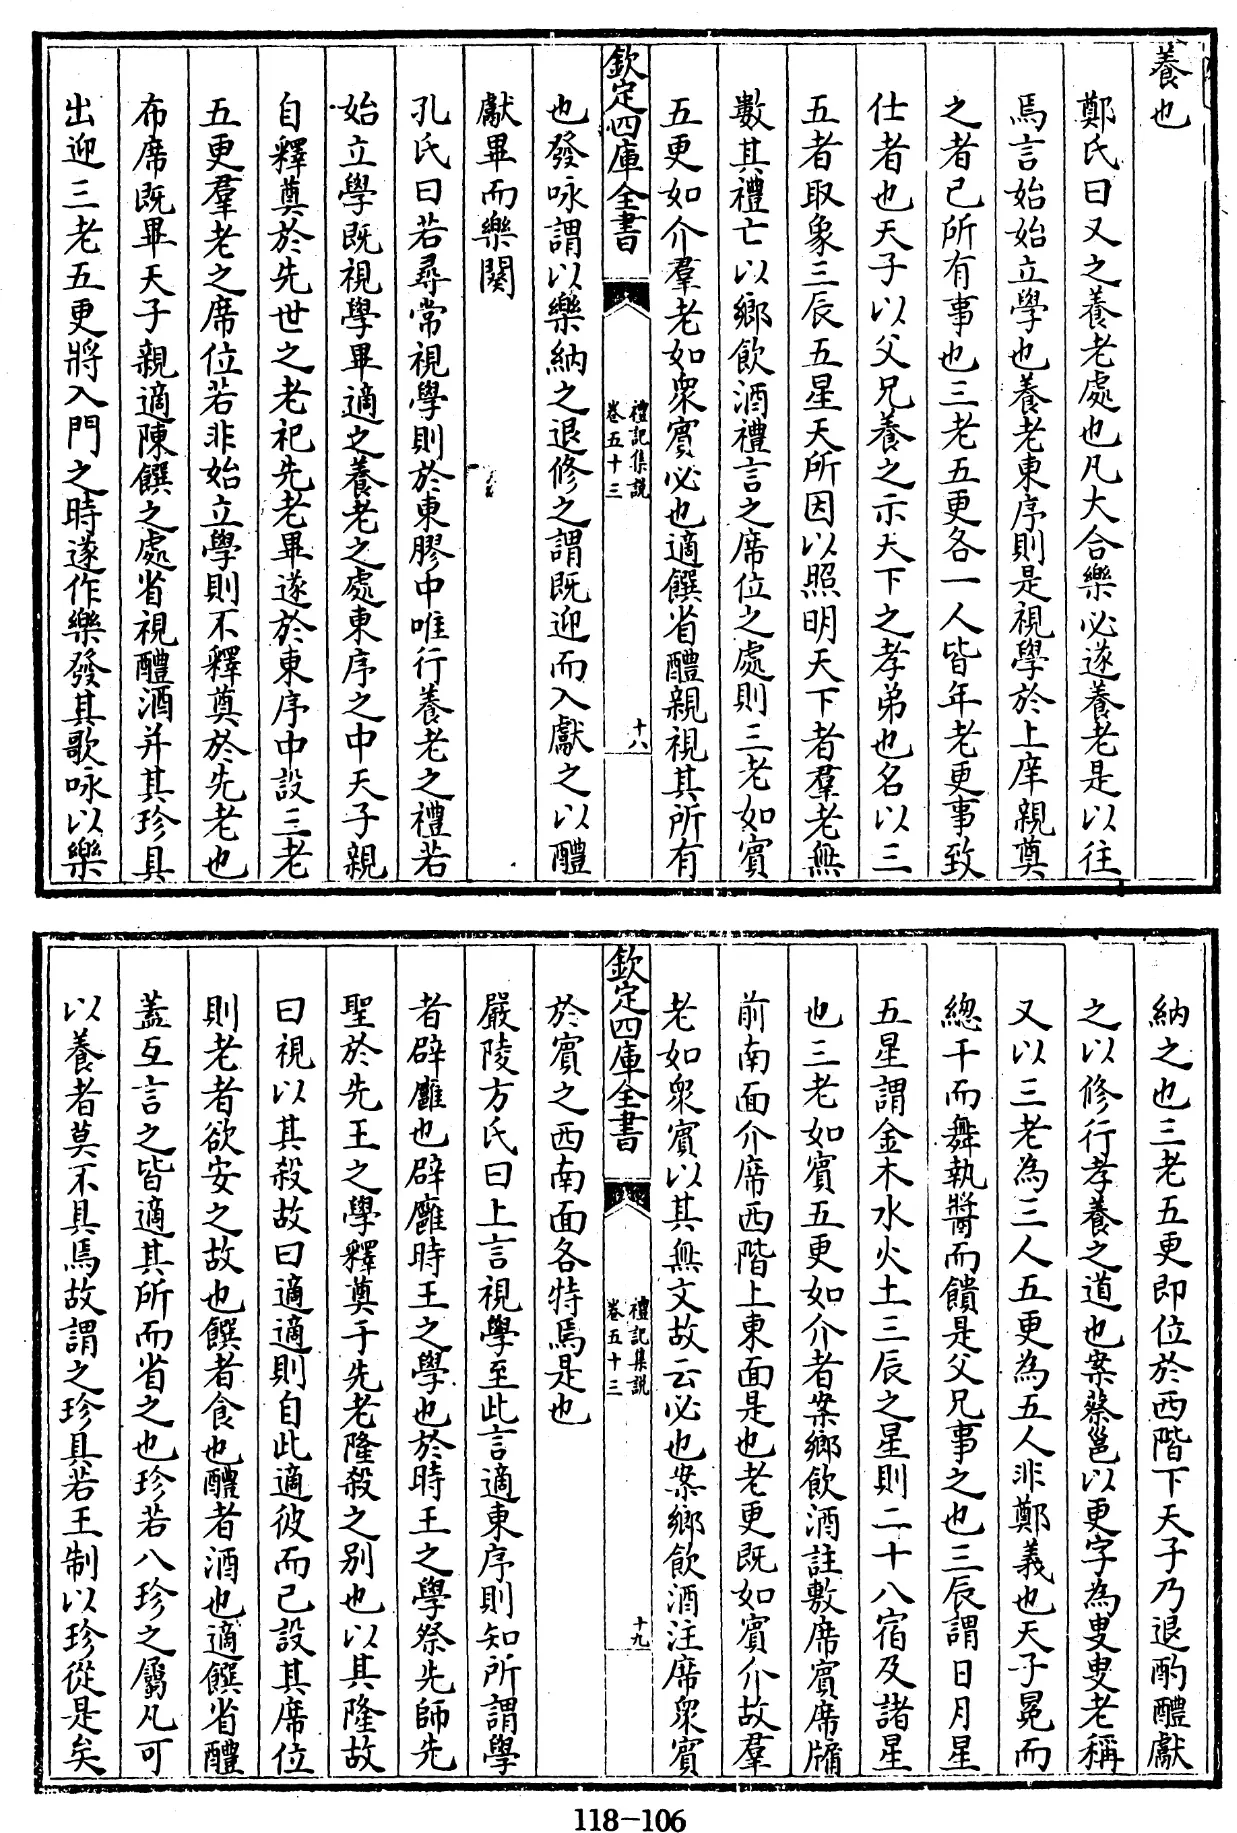 養也
鄭氏曰又之養老處也凡大合樂必遂養老是以往
焉言始始立學也養老東序則是視學於上庠親奠
之者已所有事也三老五更各一人皆年老更事致
仕者也天子以父兄養之示天下之孝弟也名以三
五者取象三辰五星天所因以照明天下者羣老無
數其禮亡以鄉飲酒禮言之席位之處則三老如賓
五更如介羣老如衆賓必也適饌省醴親視其所有
欽定四庫全書
禮記集說
卷五十三
十八
也發咏謂以樂納之退修之謂既迎而入獻之以醴
獻畢而樂闋
孔氏曰若尋常視學則於東膠中唯行養老之禮若
始立學既視學畢適之養老之處東序之中天子親
自釋奠於先世之老祀先老畢遂於東序中設三老
五更羣老之席位若非始立學則不釋奠於先老也
布席既畢天子親適陳饌之處省視醴酒并其珍具
出迎三老五更將入門之時遂作樂發其歌咏以樂
納之也三老五更即位於西階下天子乃退酌醴獻
之以修行孝養之道也案蔡邕以更字為叟叟老稱
又以三老為三人五更為五人非鄭義也天子冕而
總干而舞執醬而饋是父兄事之也三辰謂日月星
五星謂金木水火土三辰之星則二十八宿及諸星
也三老如賓五更如介者案鄉飲酒註敷席賓席牖
前南面介席西階上東面是也老更既如賓介故羣
老如衆賓以其無文故云必也案鄉飲酒注席衆賓
欽定四庫全書
禮記集說
卷五十三
十九
於賓之西南面各特焉是也
嚴陵方氏曰上言視學至此言適東序則知所謂學
者辟廱也辟廱時王之學也於時王之學祭先師先
聖於先王之學釋奠于先老隆殺之别也以其隆故
曰視以其殺故曰適適則自此適彼而已設其席位
則老者欲安之故也饌者食也醴者酒也適饌省醴
蓋互言之皆適其所而省之也珍若八珍之屬凡可
以養者莫不具焉故謂之珍具若王制以珍從是矣
118-106